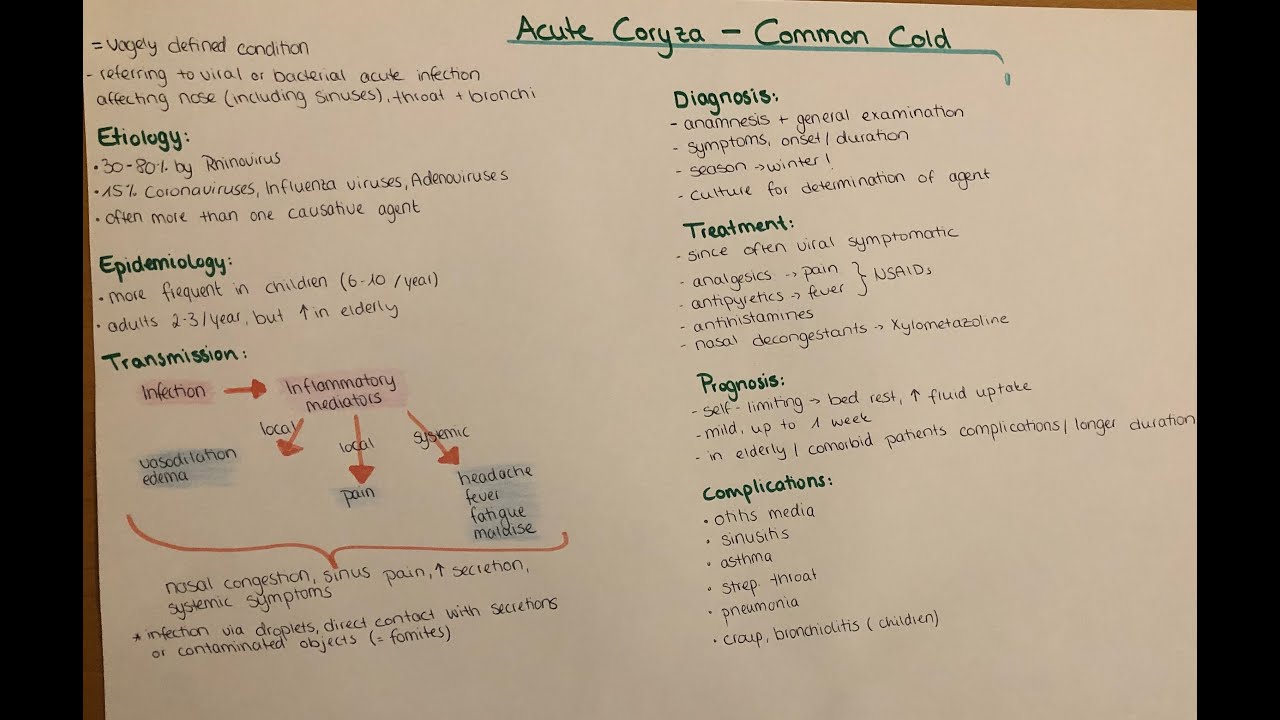 Acute Coryza - Common Cold
= vagely defined condition
- referring to viral or bacterial acute infection
affecting nose (including sinuses), throat + bronchi
Etiology:
• 30-80% by Rhinovirus
• 15% Coronaviruses, Influenza viruses, Adenoviruses
• often more than one causative agent
Epidemiology:
• more frequent in children (6-10 /year)
• adults 2-3/year, but ↑ in elderly
Transmission:
Infection → Inflammatory
mediators
local
local
systemic
vasodilation
edema
pain
headache
fever
fatigue
malaise
nasal congestion, sinus pain, ↑ secretion,
systemic symptoms
* infection via droplets, direct contact with secretions
or contaminated objects (= fomites)
Diagnosis:
- anamnesis + general examination
- symptoms, onset / duration
- season → winter!
- culture for determination of agent
Treatment:
- since often viral symptomatic
- analgesics → pain } NSAIDs
- antipyretics → fever
- antihistamines
- nasal decongestants → Xylometazoline
Prognosis:
- self-limiting → bed rest, ↑ fluid uptake
- mild, up to 1 week
- in elderly / comorbid patients complications / longer duration
Complications:
• otitis media
• sinusitis
• asthma
• strep. throat
• pneumonia
• croup, bronchiolitis (children)